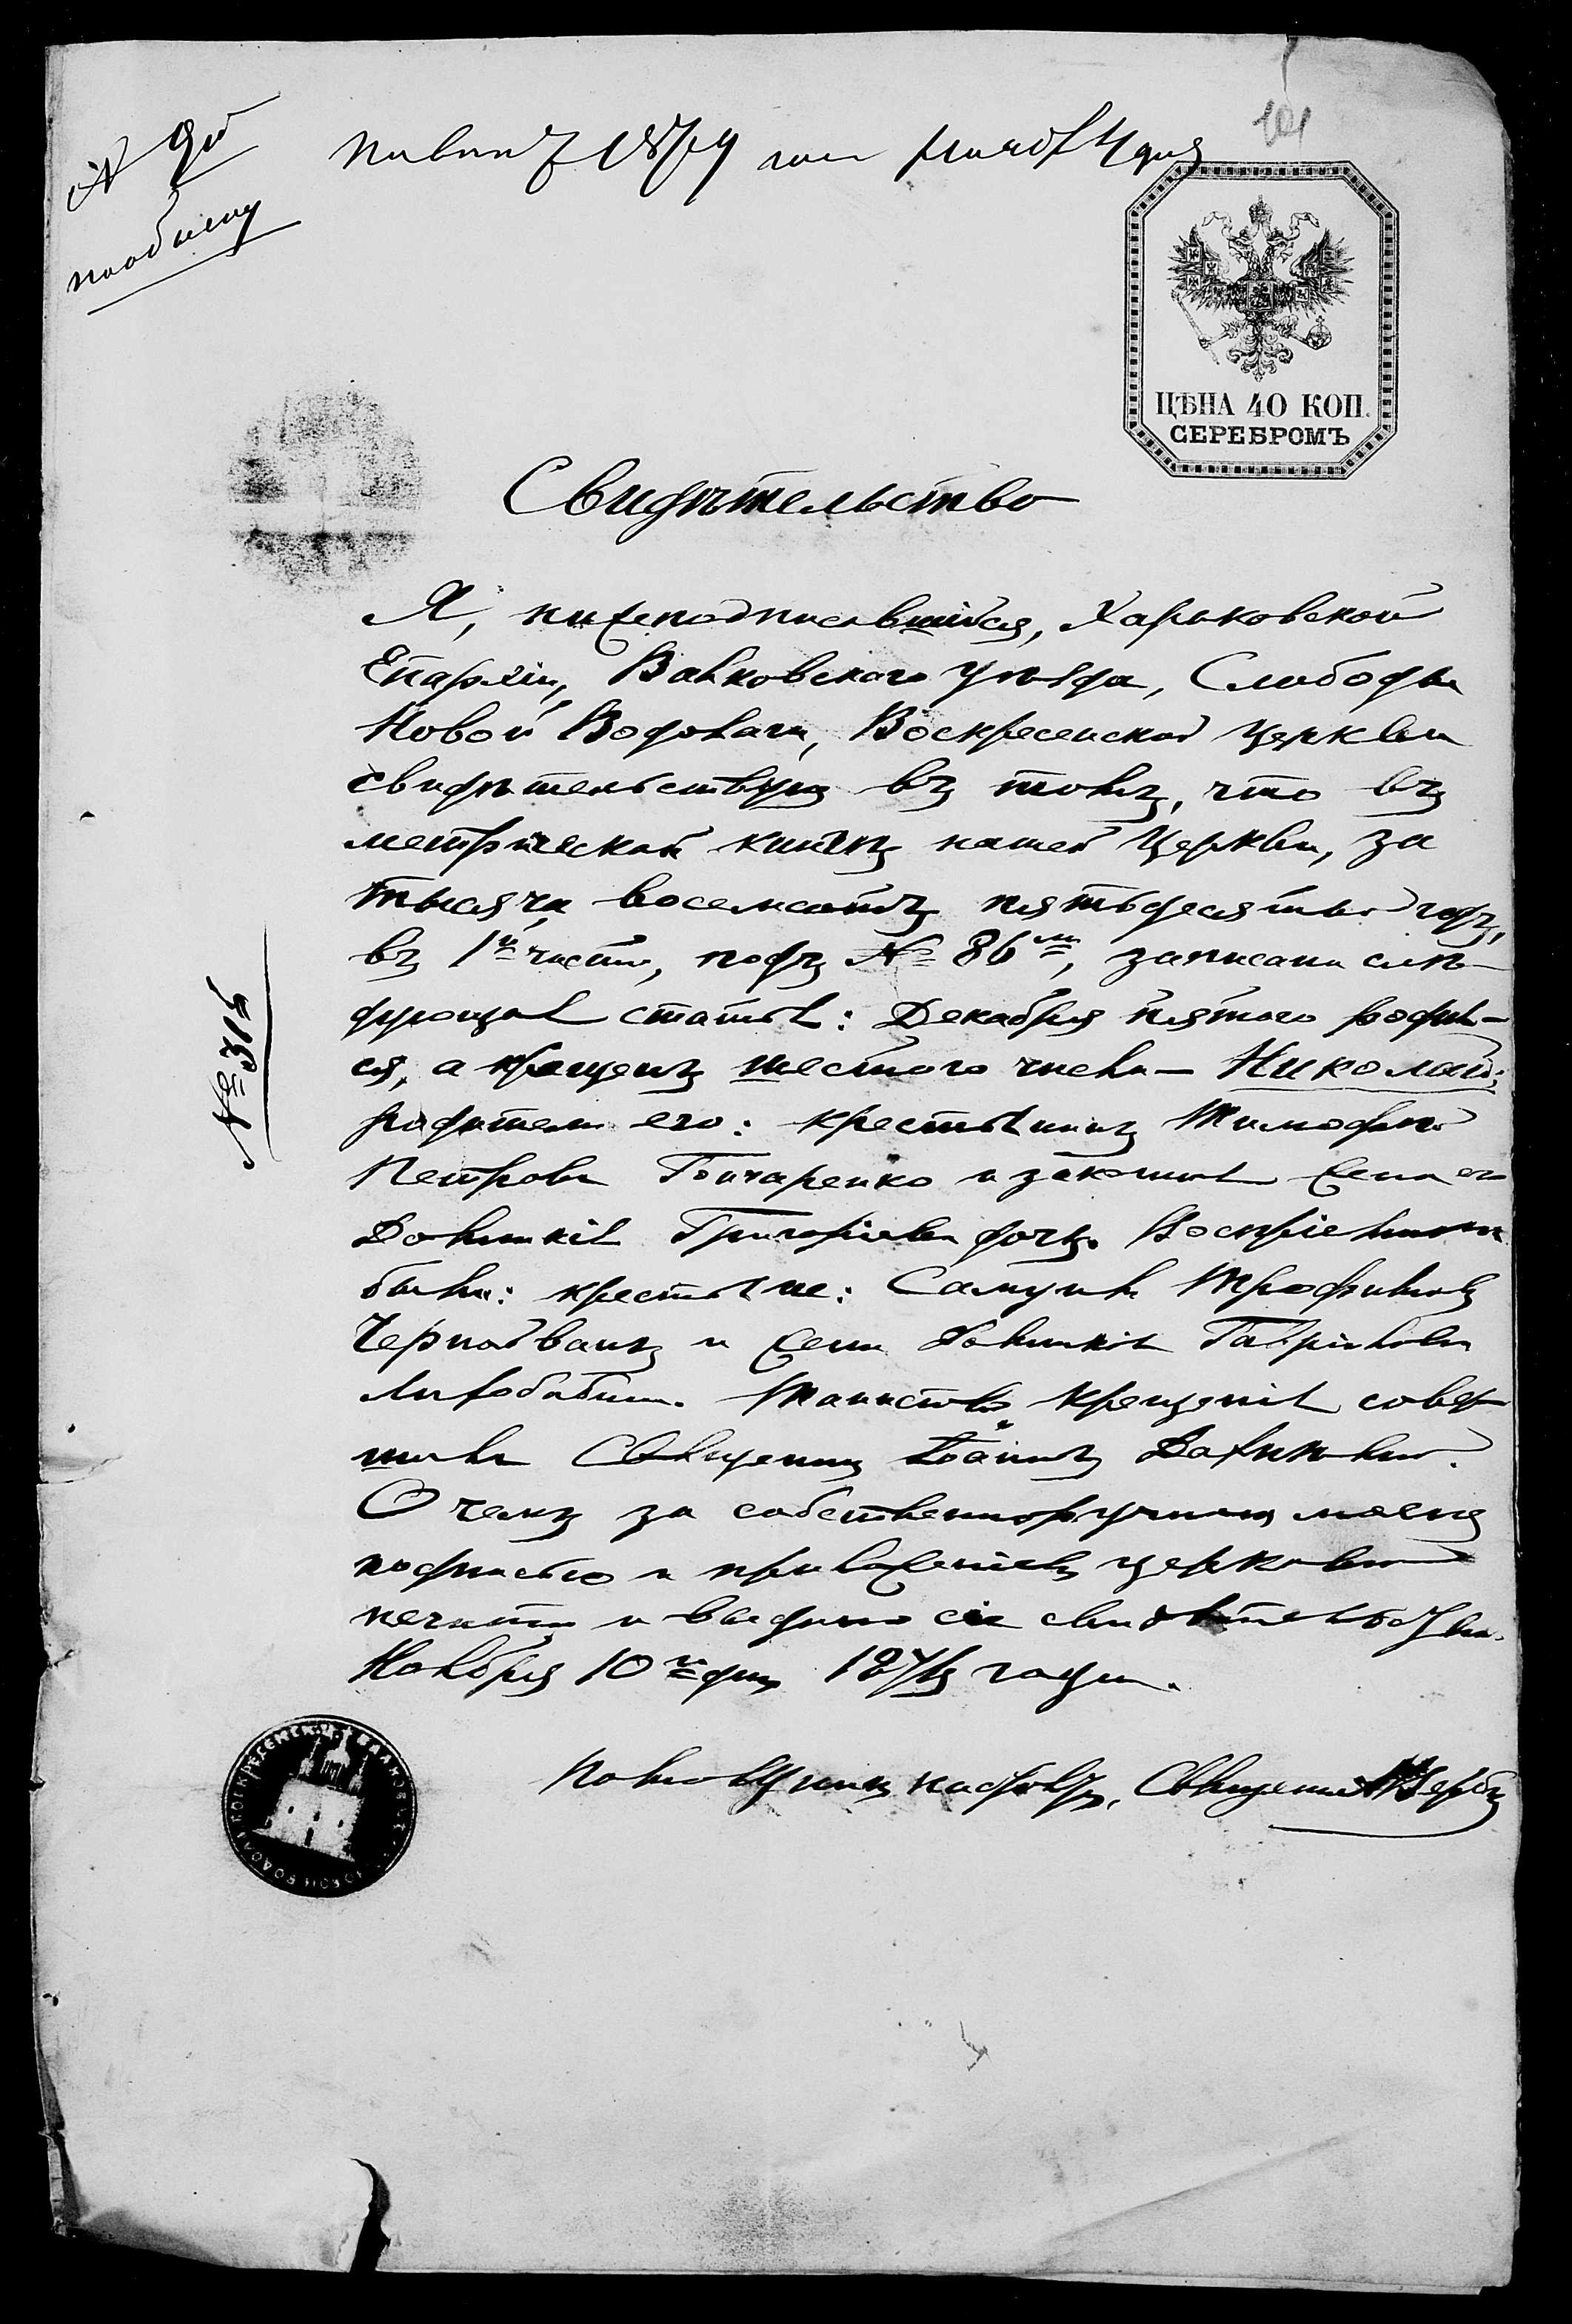 101
ЦѢНА 40 КОП.
СЕРЕБРОМЪ
Свидѣтельство
Я, нижеподписавшійся, Харьковской
Епархіи, Валковскаго уѣзда, Слободы
Новой Водолаги, Воскресенской церкви
свидѣтельствую въ томъ, что въ
метрической книгѣ нашей Церкви, за
тысяча восемьсотъ пятьдесятый годъ,
въ 1й части, подъ № 86мъ, записана слѣ-
дующая статья: Декабря пятого родил-
ся, а крещенъ шестого числа — Николай;
родители его: крестьянинъ Тимофей
Петровъ Гончаренко и законная жена его
Домникія Григорьева дочь. Воспріемники
были: крестьяне: Самуилъ Трофимовъ
и жена Домникія Гаврилова
Таинство крещенія совер-
шилъ Священникъ Іоаннъ
О чемъ за собственноручною моею
подписью и приложеніемъ церковной
печати и выдано сіе свидѣтельство.
Ноября 10го дня 1871 года.
Священникъ